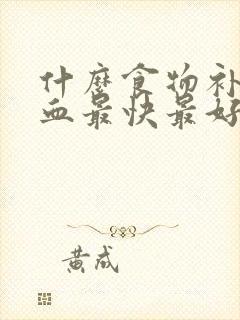 什麼食物补
血最快最好
黄成